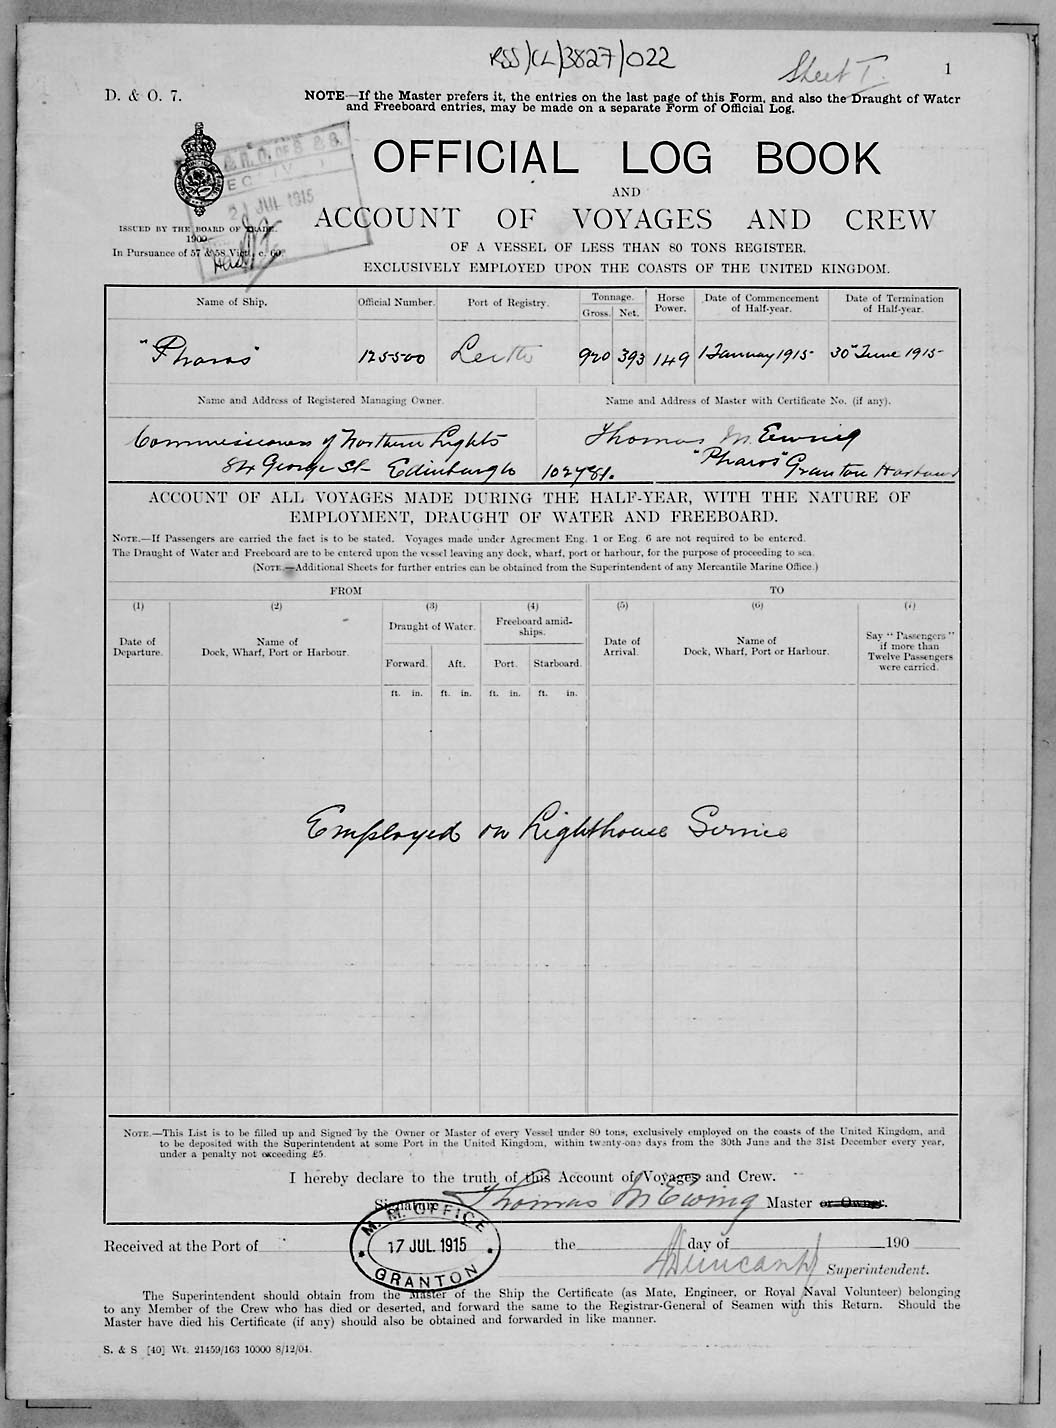 RSS/CL/3827/022
Sheet I.
1
D. & O. 7.
NOTE—If the Master prefers it, the entries on the last page of this Form, and also the Draught of Water
and Freeboard entries, may be made on a separate Form of Official Log.
OFFICIAL LOG BOOK
AND
ACCOUNT OF VOYAGES AND CREW
OF A VESSEL OF LESS THAN 80 TONS REGISTER.
EXCLUSIVELY EMPLOYED UPON THE COASTS OF THE UNITED KINGDOM.
21 JUL 1915
ISSUED BY THE BOARD OF TRADE.
1900
In Pursuance of 57 & 58 Vict., c. 60.
Name of Ship. Official Number. Port of Registry. Tonnage. Horse Power. Date of Commencement of Half-year. Date of Termination of Half-year.
Gross. Net.
"Pharos" 125500 Leith 920 393 149 1 January 1915 30th June 1915
Name and Address of Registered Managing Owner. Name and Address of Master with Certificate No. (if any).
Commissioners of Northern Lights Thomas McEwing
84 George St Edinburgh 102781. "Pharos" Granton Harbour
ACCOUNT OF ALL VOYAGES MADE DURING THE HALF-YEAR, WITH THE NATURE OF
EMPLOYMENT, DRAUGHT OF WATER AND FREEBOARD.
NOTE.—If Passengers are carried the fact is to be stated. Voyages made under Agreement Eng. 1 or Eng. 6 are not required to be entered.
The Draught of Water and Freeboard are to be entered upon the vessel leaving any dock, wharf, port or harbour, for the purpose of proceeding to sea.
(NOTE.—Additional Sheets for further entries can be obtained from the Superintendent of any Mercantile Marine Office.)
FROM TO
(1) (2) (3) (4) (5) (6) (7)
Date of Departure. Name of Dock, Wharf, Port or Harbour. Draught of Water. Freeboard amidships. Date of Arrival. Name of Dock, Wharf, Port or Harbour. Say "Passengers" if more than Twelve Passengers were carried.
Forward. Aft. Port. Starboard.
ft. in. ft. in. ft. in. ft. in.
Employed on Lighthouse Service
NOTE.—This List is to be filled up and Signed by the Owner or Master of every Vessel under 80 tons, exclusively employed on the coasts of the United Kingdom, and
to be deposited with the Superintendent at some Port in the United Kingdom, within twenty-one days from the 30th June and the 31st December every year,
under a penalty not exceeding £5.
I hereby declare to the truth of this Account of Voyages and Crew.
Signature Thomas McEwing Master or Owner.
M. M. OFFICE
17 JUL. 1915
GRANTON
Received at the Port of the day of 190
Superintendent.
The Superintendent should obtain from the Master of the Ship the Certificate (as Mate, Engineer, or Royal Naval Volunteer) belonging
to any Member of the Crew who has died or deserted, and forward the same to the Registrar-General of Seamen with this Return. Should the
Master have died his Certificate (if any) should also be obtained and forwarded in like manner.
S. & S [40] Wt. 21459/163 10000 8/12/04.